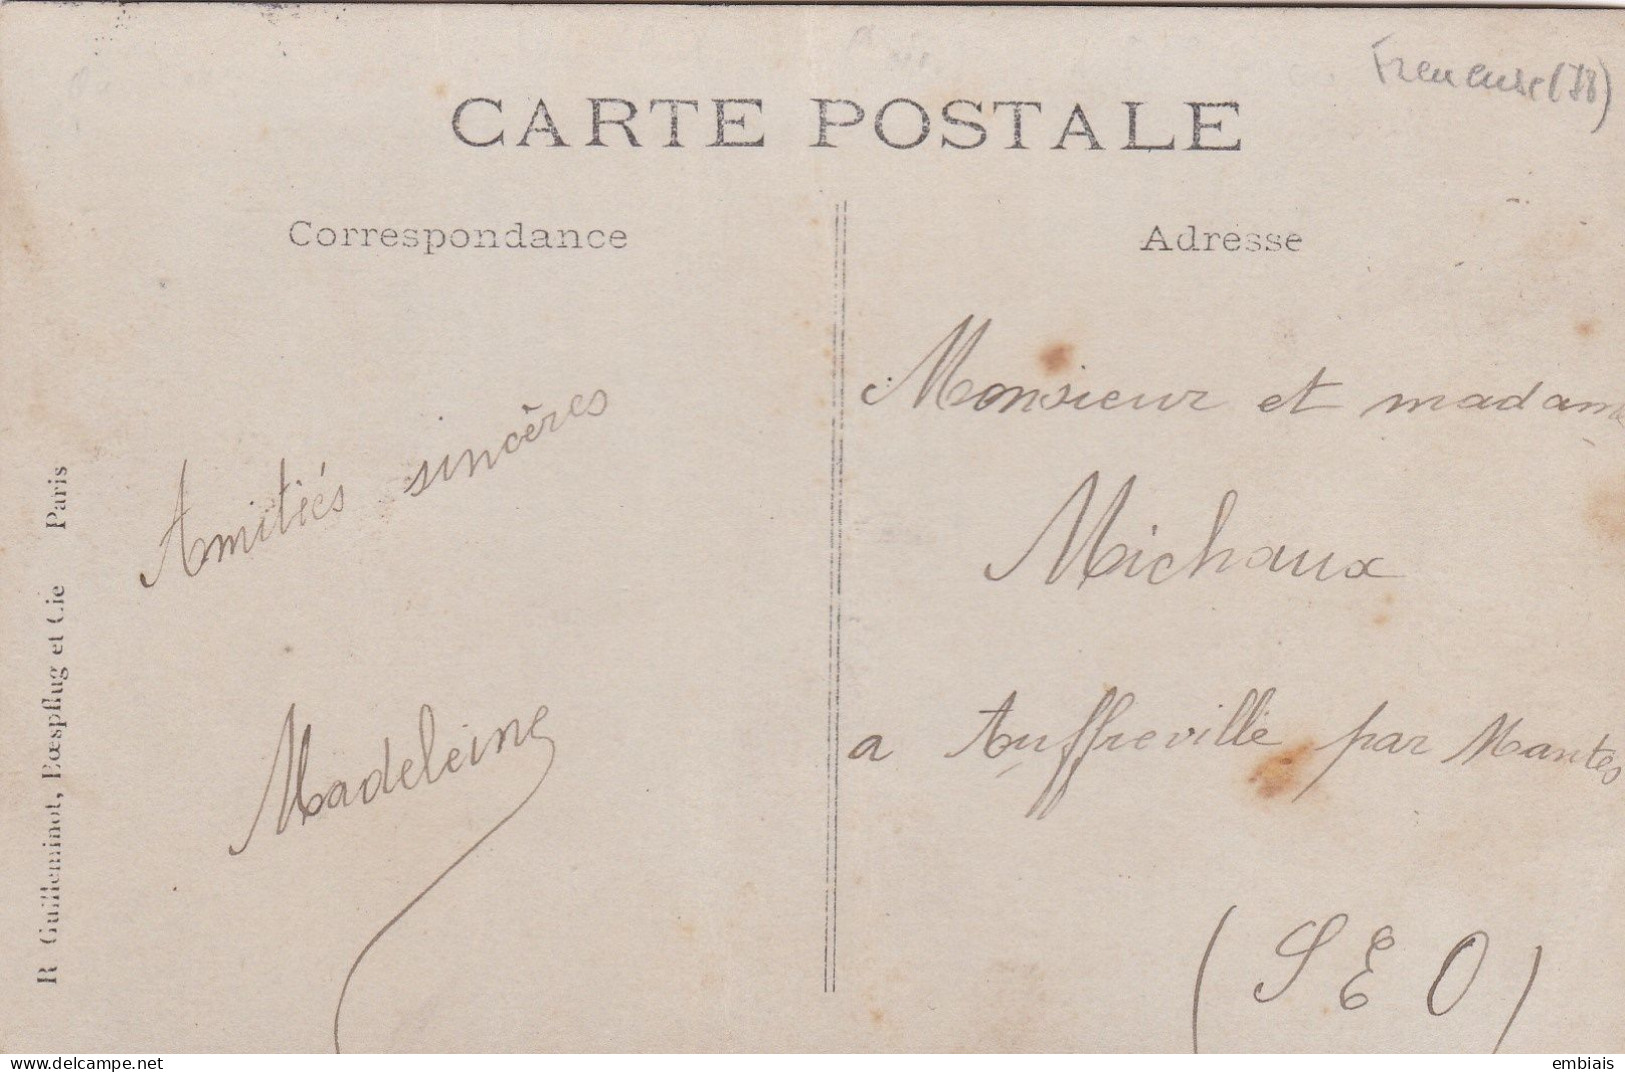 Freneuse (78)
CARTE POSTALE
Correspondance
Adresse
Amitiés sincères
Madeleine
Monsieur et madame
Michaux
a Auffreville par Mantes
(S E O)
R Guilleminot, Bœspflug et Cie Paris
www.delcampe.net
embiais